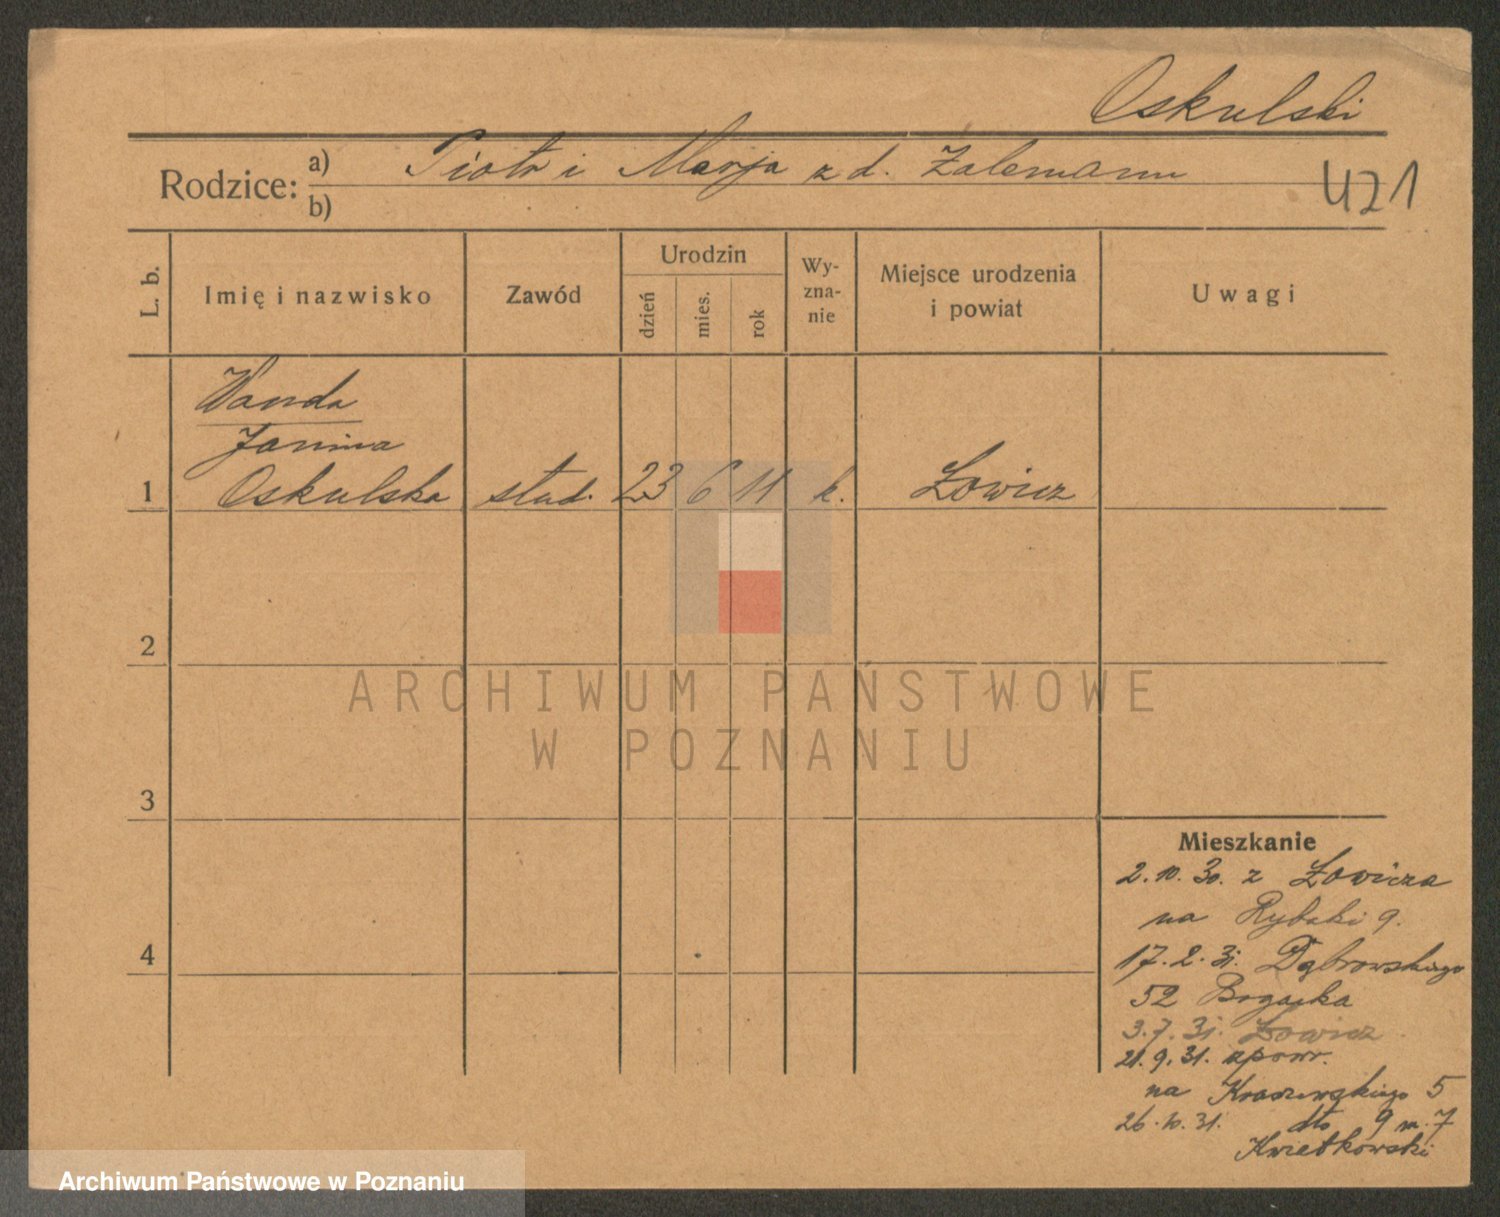 Oskulski
Rodzice:
a) Piotr i Marja z d. Zalemann
b)
421
L. b.
Imię i nazwisko
Zawód
Urodzin
dzień
mies.
rok
Wy-
zna-
nie
Miejsce urodzenia
i powiat
Uwagi
Wanda
Janina
1 Oskulska stud. 23 6 11 k. Łowicz
2
3
4
ARCHIWUM PAŃSTWOWE
W POZNANIU
Mieszkanie
2.10.30. z Łowicza
na Rybaki 9.
17.2.31. Dąbrowskiego
52 Bogacka
3.7.31. Łowicz
21.9.31. zpowr.
na Kraszewskiego 5
26.10.31. dto 9 m. 7
Kwiatkowski
Archiwum Państwowe w Poznaniu